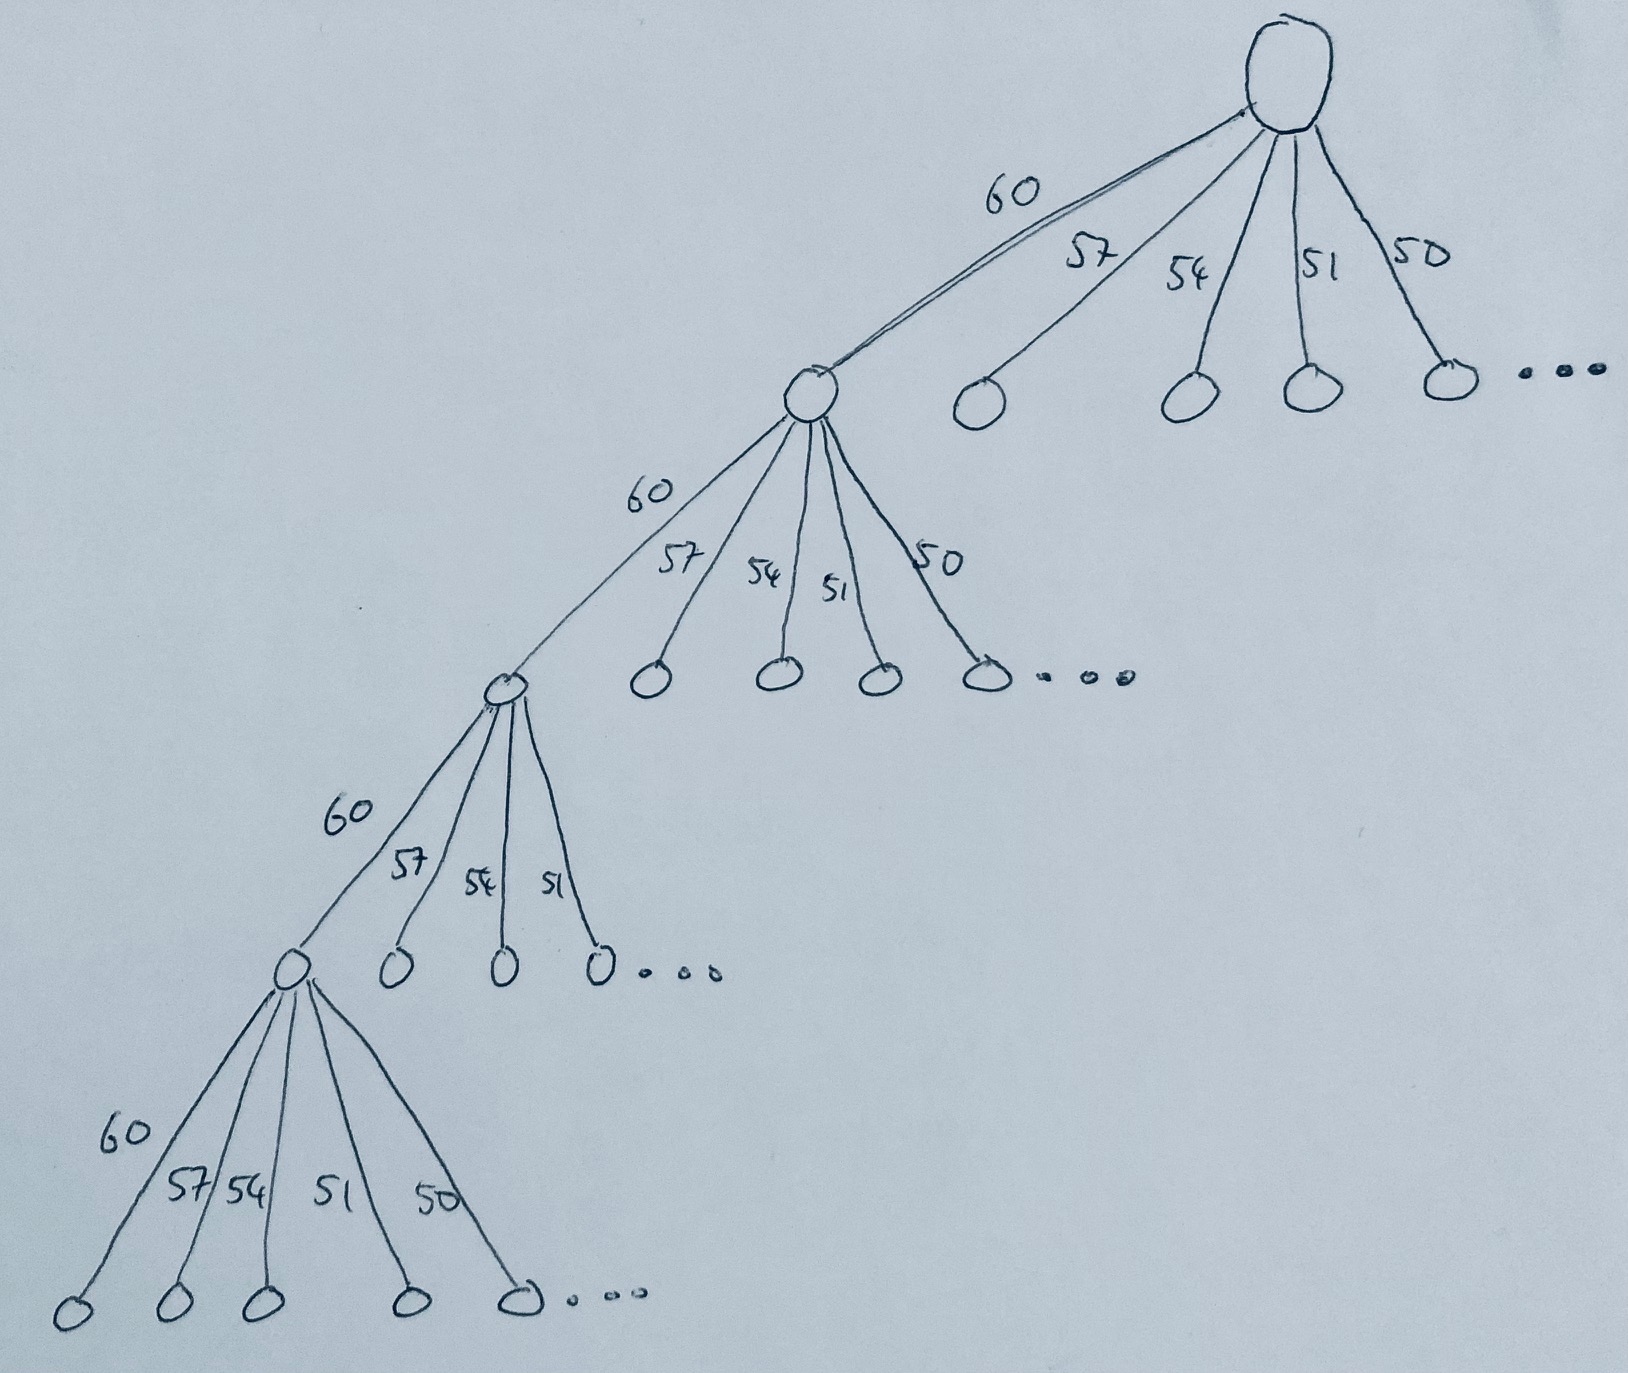 60 57 54 51 50
60 57 54 51 50
60 57 54 51
60 57 54 51 50